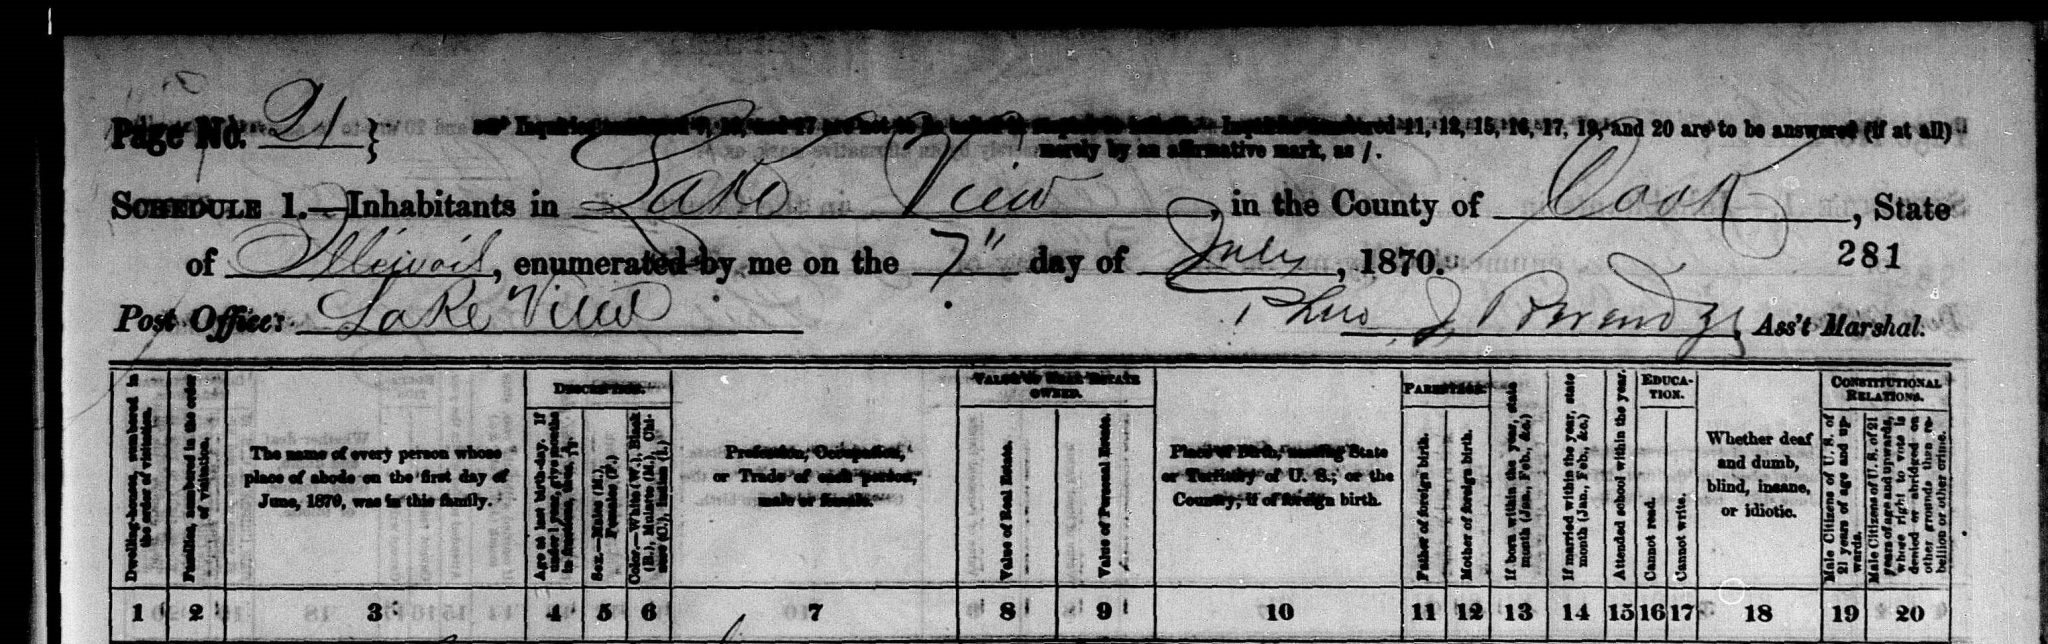 Page No. 21 } Inquiries numbered 7, 16, and 17 are not to be asked in respect to infants. Inquiries numbered 11, 12, 15, 16, 17, 19, and 20 are to be answered (if at all)
merely by an affirmative mark, as /.
SCHEDULE 1.—Inhabitants in Lake View, in the County of Cook, State
of Illinois, enumerated by me on the 7" day of July, 1870.
281
Post Office: Lake View
J, Ass't Marshal.
Dwelling-houses, numbered in the order of visitation.
Families, numbered in the order of visitation.
The name of every person whose
place of abode on the first day of
June, 1870, was in this family.
DESCRIPTION.
Age at last birth-day. If under 1 year, give months in fractions, thus, 3/12.
Sex.—Males (M.), Females (F.)
Color.—White (W.), Black (B.), Mulatto (M.), Chinese (C.), Indian (I.)
Profession, Occupation,
or Trade of each person,
male or female.
VALUE OF REAL ESTATE
OWNED.
Value of Real Estate.
Value of Personal Estate.
Place of Birth, naming State
or Territory of U. S.; or the
Country, if of foreign birth.
PARENTAGE.
Father of foreign birth.
Mother of foreign birth.
If born within the year, state month (Jan., Feb., &c.)
If married within the year, state month (Jan., Feb., &c.)
Attended school within the year.
EDUCA-
TION.
Cannot read.
Cannot write.
Whether deaf
and dumb,
blind, insane,
or idiotic.
CONSTITUTIONAL
RELATIONS.
Male Citizens of U. S. of 21 years of age and upwards.
Male Citizens of U. S. of 21 years of age and upwards, whose right to vote is denied or abridged on other grounds than rebellion or other crime.
1 2 3 4 5 6 7 8 9 10 11 12 13 14 15 16 17 18 19 20